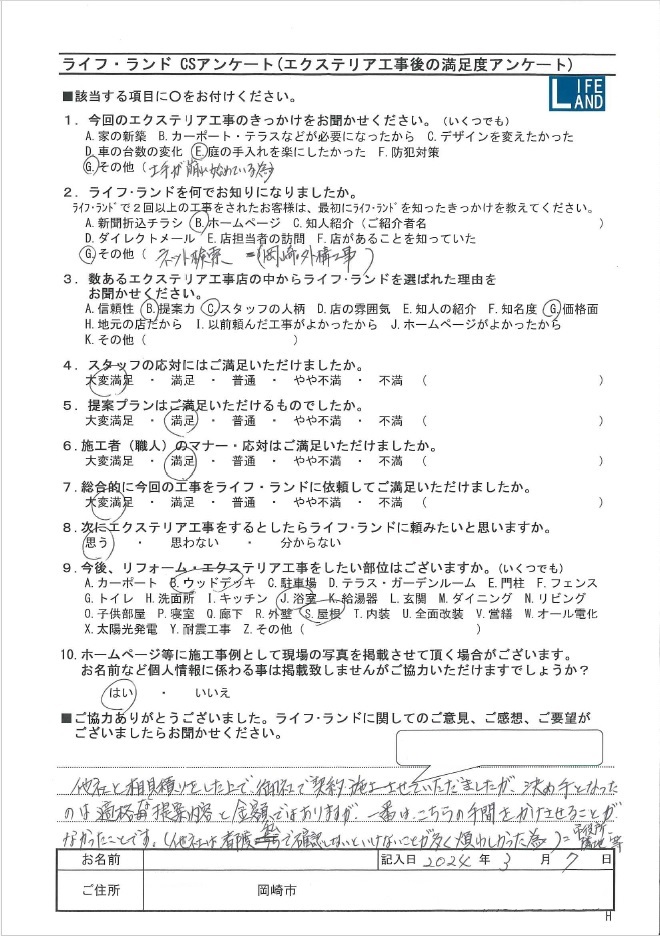 ライフ・ランド CSアンケート(エクステリア工事後の満足度アンケート)
■該当する項目に〇をお付けください。
LIFE LAND
1．今回のエクステリア工事のきっかけをお聞かせください。（いくつでも）
A.家の新築 B.カーポート・テラスなどが必要になったから C.デザインを変えたかった
D.車の台数の変化 E.庭の手入れを楽にしたかった F.防犯対策
G.その他（土手が崩れ始めている為）
2．ライフ・ランドを何でお知りになりましたか。
ﾗｲﾌ･ﾗﾝﾄﾞで２回以上の工事をされたお客様は、最初にﾗｲﾌ･ﾗﾝﾄﾞを知ったきっかけを教えてください。
A.新聞折込チラシ B.ホームページ C.知人紹介（ご紹介者名 ）
D.ダイレクトメール E.店担当者の訪問 F.店があることを知っていた
G.その他（ ネット検索 =(岡崎外構工事 )
3．数あるエクステリア工事店の中からライフ・ランドを選ばれた理由を
お聞かせください。
A.信頼性 B.提案力 C.スタッフの人柄 D.店の雰囲気 E.知人の紹介 F.知名度 G.価格面
H.地元の店だから I.以前頼んだ工事がよかったから J.ホームページがよかったから
K.その他（ ）
4．スタッフの応対にはご満足いただけましたか。
大変満足 ・ 満足 ・ 普通 ・ やや不満 ・ 不満 （ ）
5．提案プランはご満足いただけるものでしたか。
大変満足 ・ 満足 ・ 普通 ・ やや不満 ・ 不満 （ ）
6．施工者（職人）のマナー・応対はご満足いただけましたか。
大変満足 ・ 満足 ・ 普通 ・ やや不満 ・ 不満 （ ）
7．総合的に今回の工事をライフ・ランドに依頼してご満足いただけましたか。
大変満足 ・ 満足 ・ 普通 ・ やや不満 ・ 不満 （ ）
8．次にエクステリア工事をするとしたらライフ・ランドに頼みたいと思いますか。
思う ・ 思わない ・ 分からない
9．今後、リフォーム・エクステリア工事をしたい部位はございますか。（いくつでも）
A.カーポート B.ウッドデッキ C.駐車場 D.テラス・ガーデンルーム E.門柱 F.フェンス
G.トイレ H.洗面所 I.キッチン J.浴室 K.給湯器 L.玄関 M.ダイニング N.リビング
O.子供部屋 P.寝室 Q.廊下 R.外壁 S.屋根 T.内装 U.全面改装 V.営繕 W.オール電化
X.太陽光発電 Y.耐震工事 Z.その他（ ）
10．ホームページ等に施工事例として現場の写真を掲載させて頂く場合がございます。
お名前など個人情報に係わる事は掲載致しませんがご協力いただけますでしょうか？
はい ・ いいえ
■ご協力ありがとうございました。ライフ・ランドに関してのご意見、ご感想、ご要望が
ございましたらお聞かせください。
他社と相見積りをした上で御社で契約 施工させていただきましたが、決め手となった
のは適格な提案内容と金額ではありますが、一番はこちらの手間をかけさせることが
なかったことです。（他社は都度 で確認しないといけないことが多く煩わしかった為）=市役所 等
お名前 記入日 2024 年 3 月 7 日
ご住所 岡崎市
H